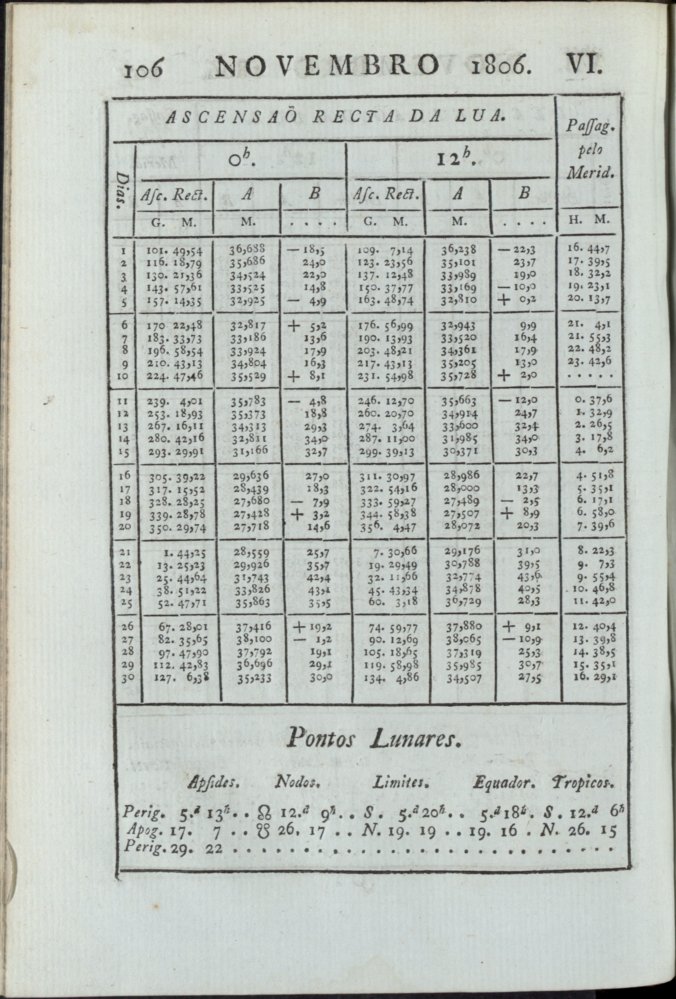 106 NOVEMBRO 1806. VI.
ASCENSAÕ RECTA DA LUA.
Dias. 0h. 12h. Paſſag. pelo Merid.
Aſc. Rect. A B Aſc. Rect. A B
G. M. M. . . . . G. M. M. . . . . H. M.
1 101. 49,54 36,688 — 18,5 109. 7,14 36,238 — 22,3 16. 44,7
2 116. 18,79 35,686 24,0 123. 23,56 35,101 23,7 17. 39,5
3 130. 21,36 34,524 22,0 137. 12,48 33,989 19,0 18. 32,2
4 143. 57,61 33,525 14,8 150. 37,77 33,169 — 10,0 19. 23,1
5 157. 14,35 32,925 — 4,9 163. 48,74 32,810 + 0,2 20. 13,7
6 170 22,48 32,817 + 5,2 176. 56,99 32,943 9,9 21. 4,1
7 183. 33,73 33,186 13,6 190. 13,93 33,520 16,4 21. 55,3
8 196. 58,54 33,924 17,9 203. 48,21 34,361 17,9 22. 48,2
9 210. 43,13 34,804 16,3 217. 43,13 35,205 13,0 23. 42,6
10 224. 47,46 35,529 + 8,1 231. 54,98 35,728 + 2,0 . . . . .
11 239. 4,01 35,783 — 4,8 246. 12,70 35,663 — 12,0 0. 37,6
12 253. 18,93 35,373 18,8 260. 20,70 34,914 24,7 1. 32,9
13 267. 16,11 34,313 29,3 274. 3,64 33,600 32,4 2. 26,5
14 280. 42,16 32,811 34,0 287. 11,00 31,985 34,0 3. 17,8
15 293. 29,91 31,166 32,7 299. 39,13 30,371 30,3 4. 6,2
16 305. 39,22 29,636 27,0 311. 30,97 28,986 22,7 4. 51,8
17 317. 15,52 28,439 18,3 322. 54,16 28,000 13,3 5. 35,1
18 328. 28,25 27,680 — 7,9 333. 59,27 27,489 — 2,5 6. 17,1
19 339. 28,78 27,428 + 3,2 344. 58,38 27,507 + 8,9 6. 58,0
20 350. 29,74 27,718 14,6 356. 4,47 28,072 20,3 7. 39,6
21 1. 44,25 28,559 25,7 7. 30,66 29,176 31,0 8. 22,3
22 13. 25,23 29,926 35,7 19. 29,49 30,788 39,5 9. 7,3
23 25. 44,64 31,743 42,4 32. 11,66 32,774 43,6 9. 55,4
24 38. 51,22 33,826 43,1 45. 43,34 34,878 40,5 10. 46,8
25 52. 47,71 35,863 35,5 60. 3,18 36,729 28,3 11. 42,0
26 67. 28,01 37,416 + 19,2 74. 59,77 37,880 + 9,1 12. 40,4
27 82. 35,65 38,100 — 1,2 90. 12,69 38,065 — 10,9 13. 39,8
28 97. 47,90 37,792 19,1 105. 18,65 37,319 25,3 14. 38,5
29 112. 42,83 36,696 29,1 119. 58,98 35,985 30,7 15. 35,1
30 127. 6,38 35,233 30,0 134. 4,86 34,507 27,5 16. 29,1
Pontos Lunares.
Apſides. Nodos. Limites. Equador. Tropicos.
Perig. 5.d 13h . . ☊ 12.d 9h . . S. 5.d 20h . . 5.d 18h . S. 12.d 6h
Apog. 17. 7 . . ☋ 26. 17 . . N. 19. 19 . . 19. 16 . N. 26. 15
Perig. 29. 22 . . . . . . . . . . . . . . . . . . . . . . . . . . . .